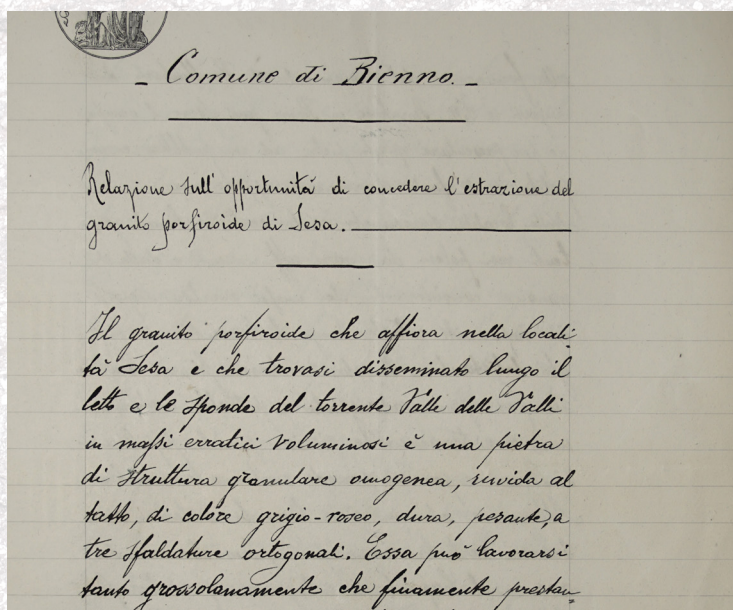 - Comune di Bienno. -
Relazione sull' opportunità di concedere l'estrazione del
granito porfiroide di Sesa.
Il granito porfiroide che affiora nella locali
tà Sesa e che trovasi disseminato lungo il
letto e le sponde del torrente Valle delle Valli
in massi erratici voluminosi è una pietra
di struttura granulare omogenea, ruvida al
tatto, di colore grigio-roseo, dura, pesante, a
tre sfaldature ortogonali. Essa può lavorarsi
tanto grossolanamente che finamente prestan=